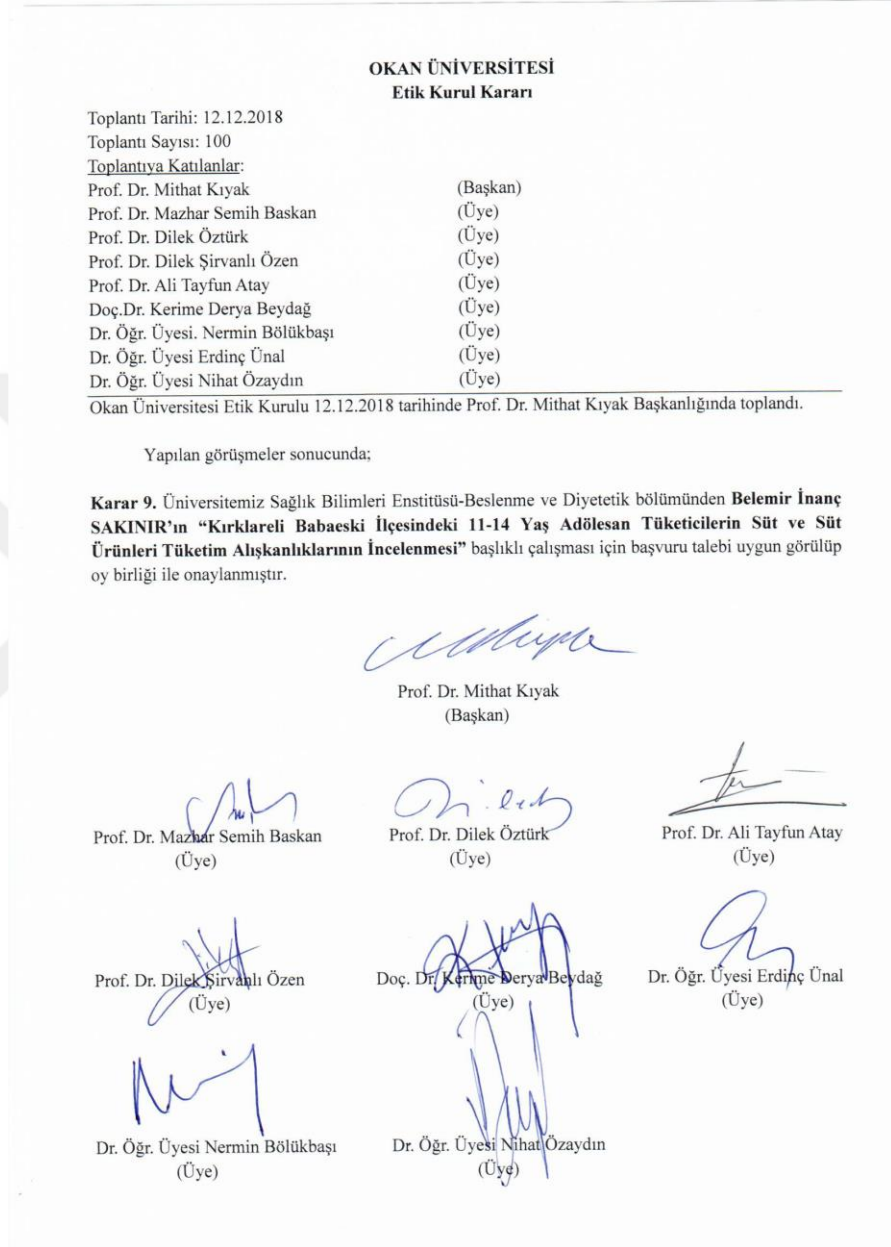 OKAN ÜNİVERSİTESİ
Etik Kurul Kararı
Toplantı Tarihi: 12.12.2018
Toplantı Sayısı: 100
Toplantıya Katılanlar:
Prof. Dr. Mithat Kıyak (Başkan)
Prof. Dr. Mazhar Semih Baskan (Üye)
Prof. Dr. Dilek Öztürk (Üye)
Prof. Dr. Dilek Şirvanlı Özen (Üye)
Prof. Dr. Ali Tayfun Atay (Üye)
Doç.Dr. Kerime Derya Beydağ (Üye)
Dr. Öğr. Üyesi. Nermin Bölükbaşı (Üye)
Dr. Öğr. Üyesi Erdinç Ünal (Üye)
Dr. Öğr. Üyesi Nihat Özaydın (Üye)
Okan Üniversitesi Etik Kurulu 12.12.2018 tarihinde Prof. Dr. Mithat Kıyak Başkanlığında toplandı.
Yapılan görüşmeler sonucunda;
Karar 9. Üniversitemiz Sağlık Bilimleri Enstitüsü-Beslenme ve Diyetetik bölümünden Belemir İnanç
SAKINIR'ın “Kırklareli Babaeski İlçesindeki 11-14 Yaş Adölesan Tüketicilerin Süt ve Süt
Ürünleri Tüketim Alışkanlıklarının İncelenmesi” başlıklı çalışması için başvuru talebi uygun görülüp
oy birliği ile onaylanmıştır.
Prof. Dr. Mithat Kıyak
(Başkan)
Prof. Dr. Mazhar Semih Baskan Prof. Dr. Dilek Öztürk Prof. Dr. Ali Tayfun Atay
(Üye) (Üye) (Üye)
Prof. Dr. Dilek Şirvanlı Özen Doç. Dr. Kerime Derya Beydağ Dr. Öğr. Üyesi Erdinç Ünal
(Üye) (Üye) (Üye)
Dr. Öğr. Üyesi Nermin Bölükbaşı Dr. Öğr. Üyesi Nihat Özaydın
(Üye) (Üye)